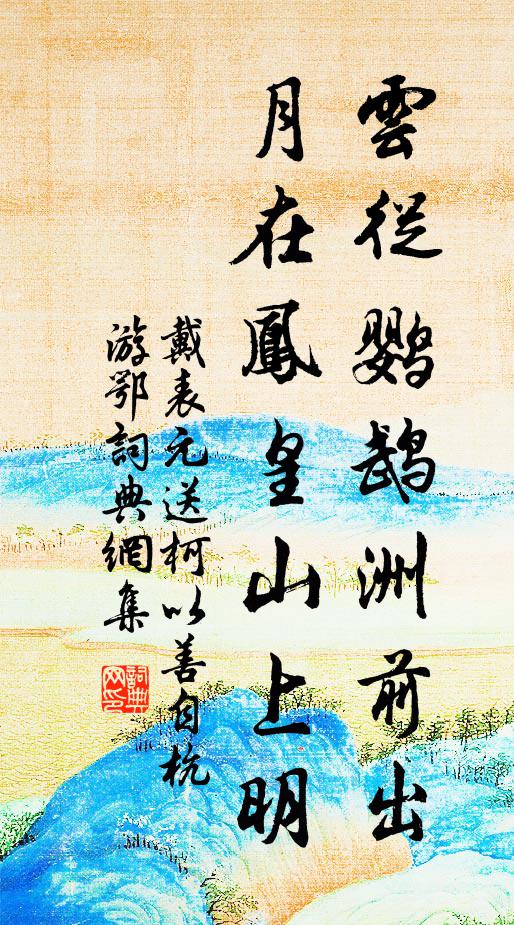 雲從鹦鵡洲前出
月在鳳皇山上明
戴表元送柯以善自杭
游鄂詞典網集
詞典